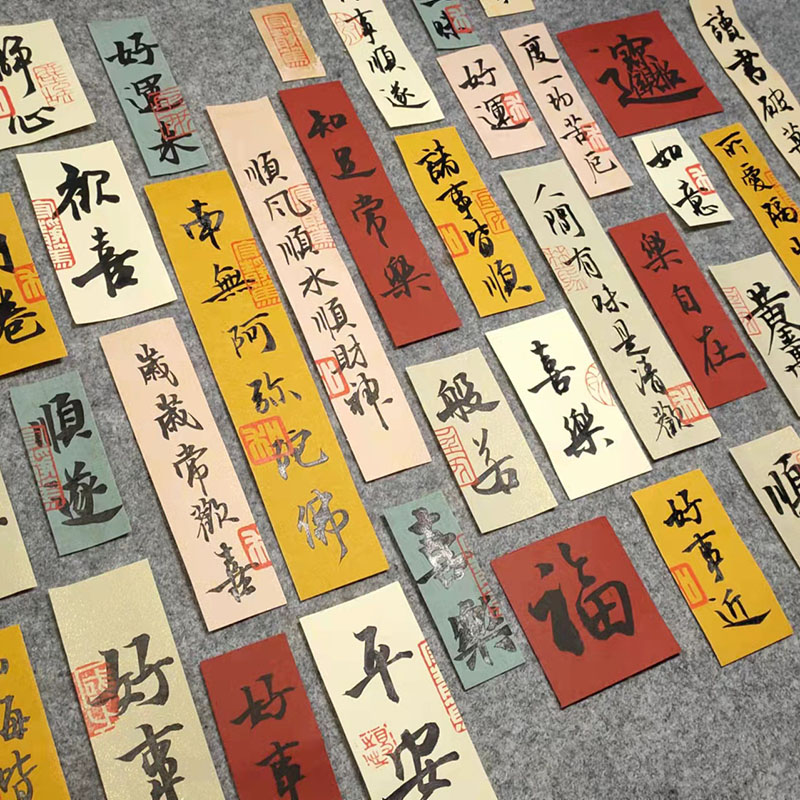 師心
好運來
事順遂
好運
度一切苦厄
讀書破萬
歡喜
南無阿弥陀佛
順風順水順財神
知足常樂
諸事皆順
人間有味是清歡
如意
所愛隔山
樂自在
黃金
卷
順遂
歲歲常歡喜
般若
喜樂
喜樂
福
好事近
順
海皆
好事
好事
平安